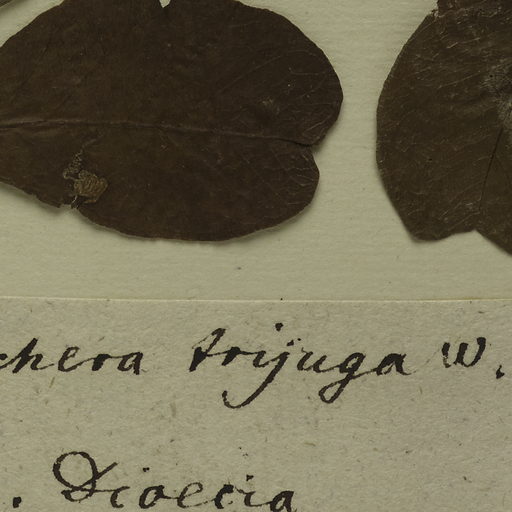 chera trijuga W.
. Dioecia